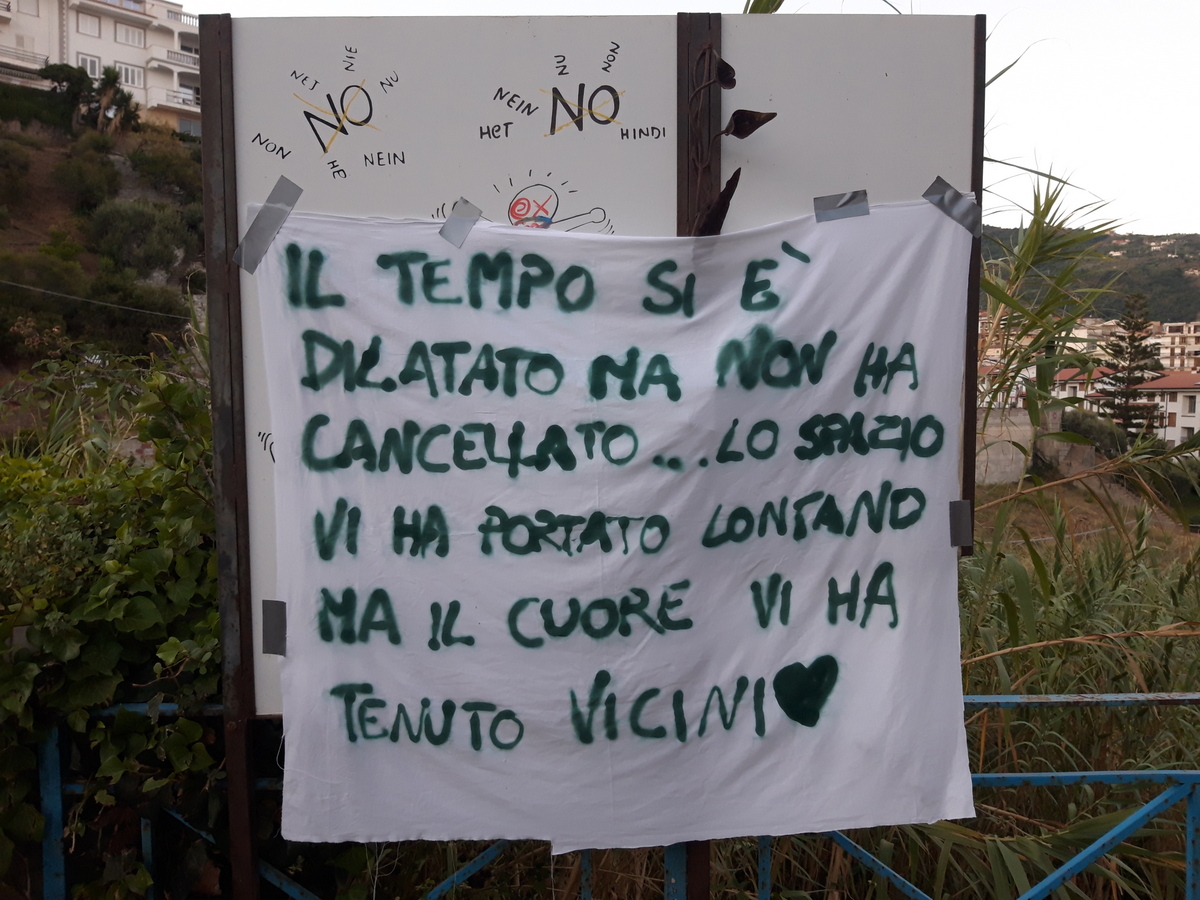 NIE
NET
NU
NO
NON
HE
NEIN
NU
NON
NEIN
NO
HET
HINDI
IL TEMPO SI È
DILATATO MA NON HA
CANCELLATO....LO SPAZIO
VI HA PORTATO LONTANO
MA IL CUORE VI HA
TENUTO VICINI♥